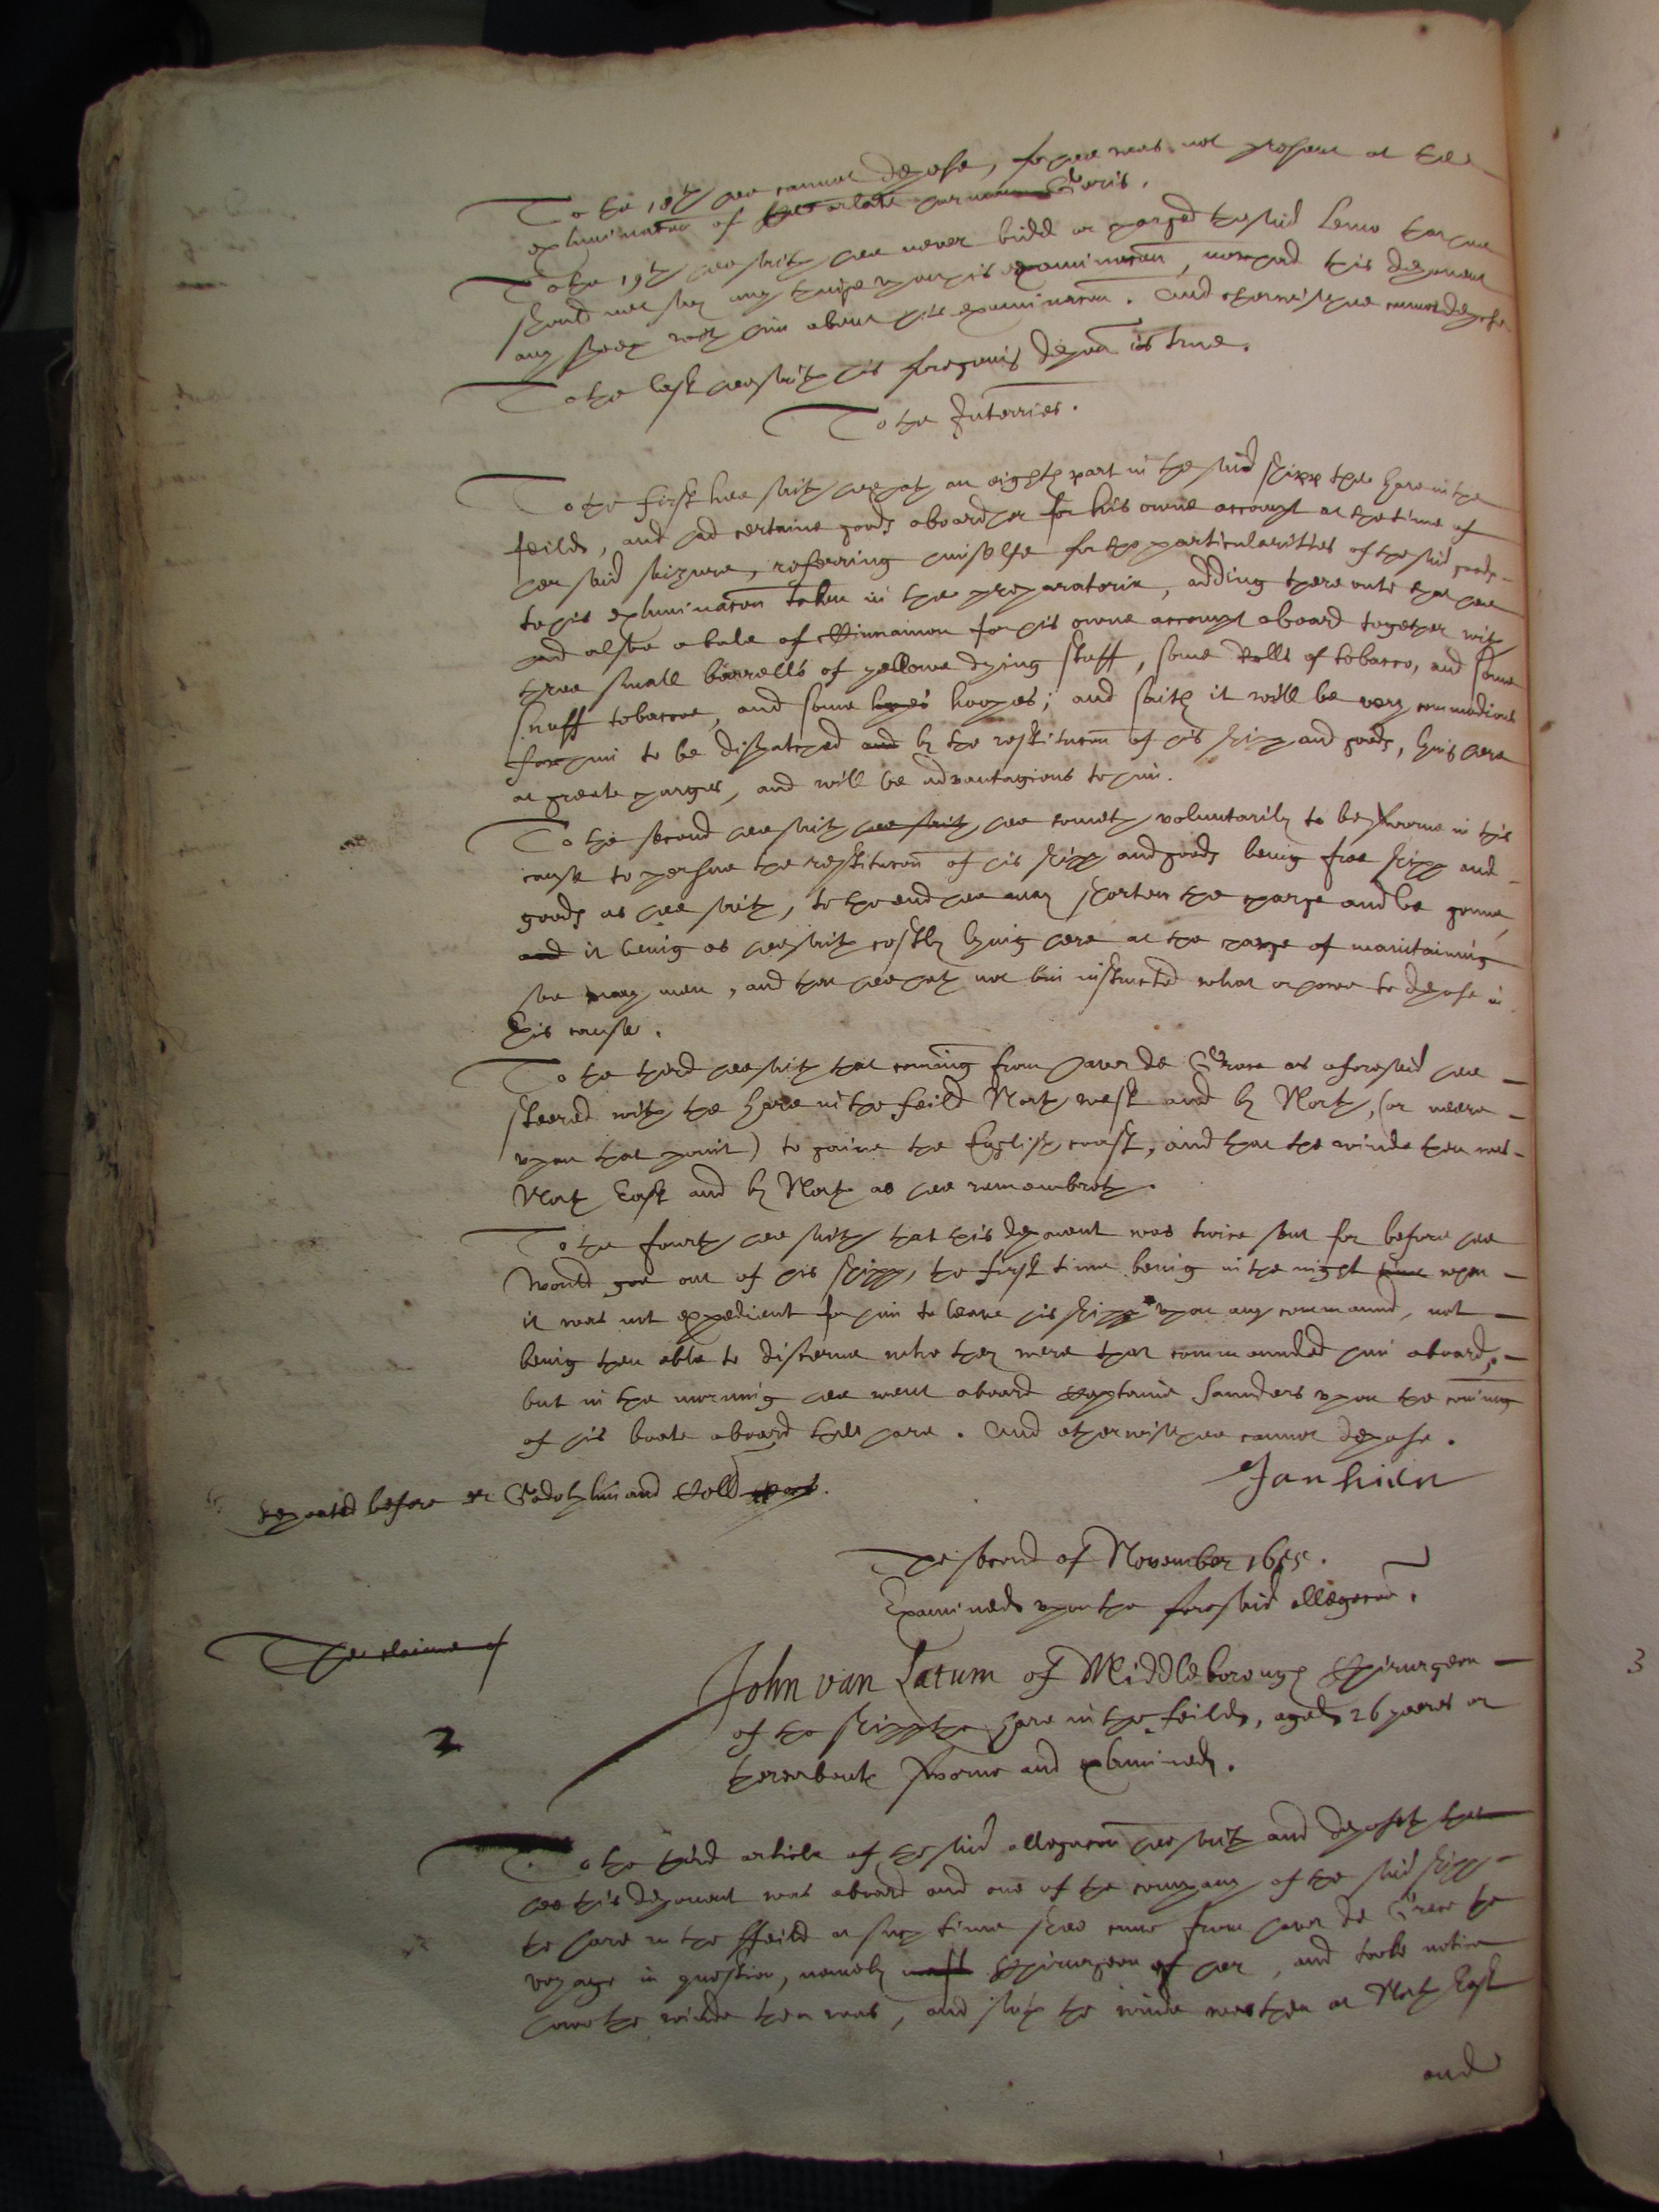 To the 18th hee cannot depose, for hee was not present at the
examinacon of the arlate harman Goris.
To the 19th hee saith hee never bidd or charged the said Lewis that hee
should not say any thinge upon his examinacon, nor had this deponent
any speech with him about his examinacon. And otherwise hee cannot depose
To the last hee saith his foregoeing deposicon is true.
To the Interries.
To the first hee saith hee hath an eighth part in the said shipp the hare in the
feilde, and had certaine goods aboard her for his owne accompt at the time of
her said seizure, referring himselfe for the particularities of the said goods
to his examinacon taken in the preparatorie, adding there unto that hee
had alsoe a bale of Cinnamon for his owne accompt aboard together with
three small barrells of yellowe dying stuff, some rolls of tobacco, and some
snuff tobaccoe, and some hoopes; and saith it will be very commodious
for him to be dispatched and by the restitucon of his shipp and goods, lying here
at greate charges, and will be advantagious to him.
To the second hee saith hee saith, hee cometh voluntarily to be sworne in this
cause to pursue the restitucon of his shipp and goods being free shipp and
goods as hee saith, to the end hee may shorten the charge and be gonne,
and it being as hee saith costly lying here at the charge of maintaining
soe many men, and that hee hath not bin instructed what or howe to depose in
this cause.
To the third hee saith that coming from haver de Grace as aforesaid hee
steered with the hare in the feild North west and by North, (or neere
upon that point) to gaine the English coast, and that the winde then was
North East and by North as hee remembreth.
To the fourth hee saith that this deponent was twice sent for before hee
would goe out of his shipp, the first time being in the night time when
it was not expedient for him to leave his shipp upon any command, not
being then able to discerne who they were that commannded him aboard,
but in the morning hee went aboard Captaine Saunders upon the coming
of his boate aboard the hare. And otherwise hee cannot depose.
Repeated before dr Godolphin and Coll
Jan hien
The second of November 1655.
Examined upon the foresaid allegacon.
The claime of
John van Latum of Middleborough Chirurgeon
of the shipp the hare in the feilde, aged 26 yeeres or
2
thereabouts sworne and examined.
To the third article of the said allegacon hee saith and deposeth that
hee this deponent was aboard and one of the company of the said shipp
the hare in the ffeild at such time shee came from haver de Grace the
voyage in question, namely Chirurgeon of her, and tooke notice
howe the winde then was, and saith the winde was then at North East
and
3